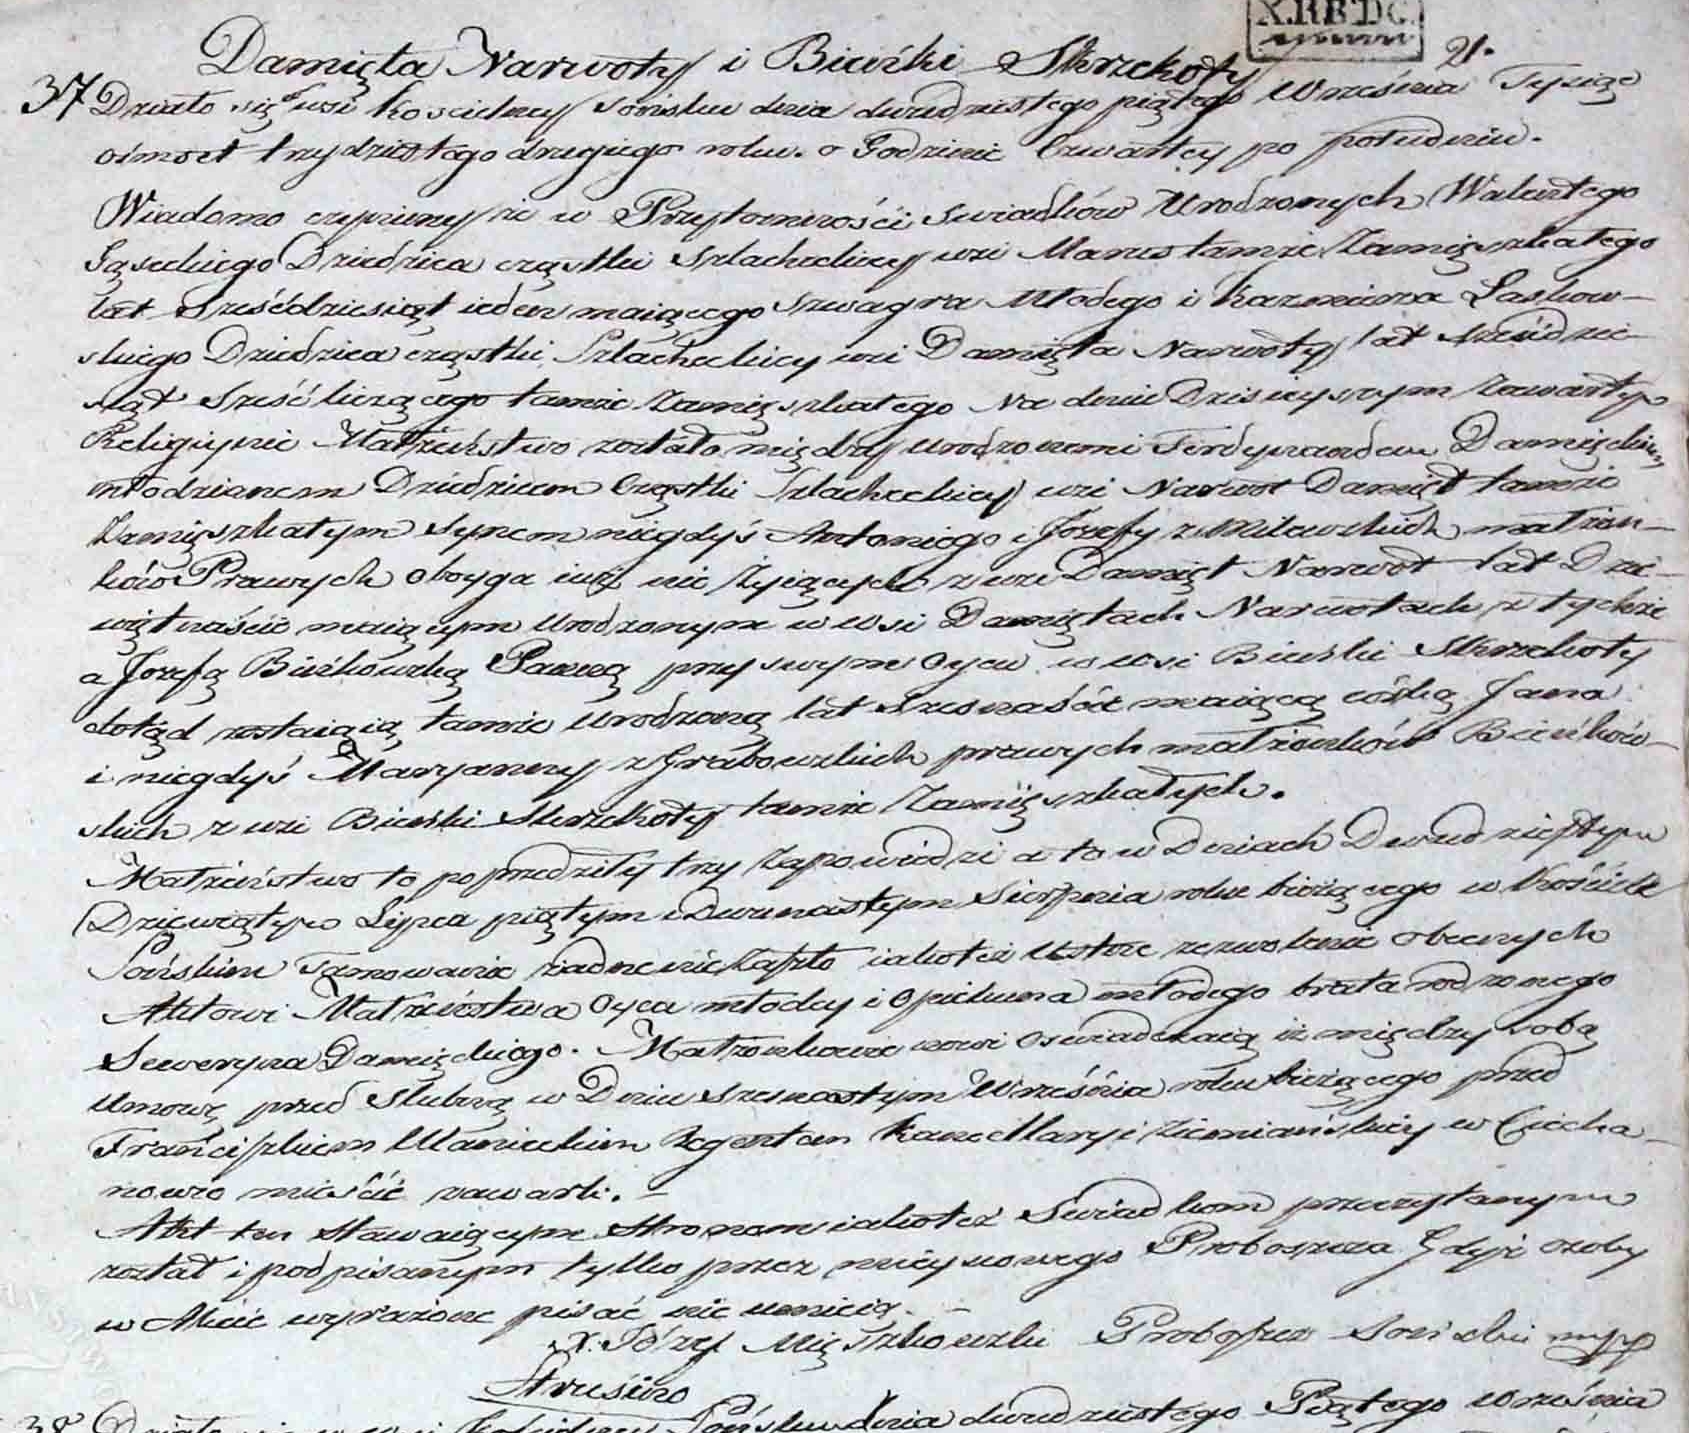 X.RB.DC.
21.
Damięta Narwoty i Bieńki Skrzekoty
37 Działo się wsi Kościelney Sońsku dnia dwudziestego piątego Września Tysiąc
ośmset trzydziestego drugiego roku. o Godzinie Czwartey po południu.
Wiadomo czyniemy że w Przytomności Swiadków Urodzonych Walentego
Gąseckiego Dziedzica cząstki Szlacheckiey wsi Marusy tamże Zamięszkałego
lat Sześćdziesiąt ieden maiącego Szwagra Młodego i Kazimierza Laskow-
skiego Dziedzica cząstki Szlacheckiey wsi Damięta Narwoty lat sześćdzie-
siąt Sześć liczącego tamże Zamięszkałego Na dniu Dzisieyszym Zawarte
Religiynie Małżeństwo zostało między urodzonemi Ferdynandem Damięckim
młodzianem Dziedzicem Cząstki Szlacheckiey wsi Narwot Damięt tamże
Zamięszkałym synem niegdyś Antoniego i Józefy z Milewskich małżon-
ków Prawych oboyga iuż nie żyiących z wsi Damięt Narwot lat Dzie-
więtnaście maiącym Urodzonym w wsi Damiętach Narwotach z tychże
a Józefą Bieńkowską Panną przy swym Oycu w wsi Bieńki Skrzekoty
dotąd zostaiącą tamże urodzoną lat szesnaście maiącą córką Jana
i niegdyś Maryanny z Grabowskich prawych małżonków Bieńkow-
skich z wsi Bieńki Skrzekoty tamże Zamięszkałych.
Małżeństwo to poprzedziły trzy Zapowiedzi a to w Dniach Dwudziestym
Dziewiątym Lipca piątym i Dwunastym Sierpnia roku bieżącego w Kościele
Sońskim Tamowanie żadne nie Zaszło iakoteż Ustne zezwolenie obecnych
Aktowi Małżeństwa Oyca młodey i Opiekuna młodego brata rodzonego
Seweryna Damięckiego. Małżonkowie nowi Oswiadczaią iż między sobą
Umowę przed Slubną w Dniu szesnastym Września roku bieżącego przed
Franciszkiem Ulanieckim Regentem Kancellaryi Ziemiańskiey w Ciecha-
nowie mieście zawarli. -
Akt ten Stawaiącym Stronom iakoteż Swiadkom przeczytanym
został i podpisanym tylko przez mieyscowego Proboszcza Gdyż osoby
w Akcie wyrażone pisać nie umieią. -
X. Józef Mięszkowski Proboszcz Soński mpp
Strusino
38 Działo się w wsi Kościelney Sońsku dnia dwudziestego Piątego września